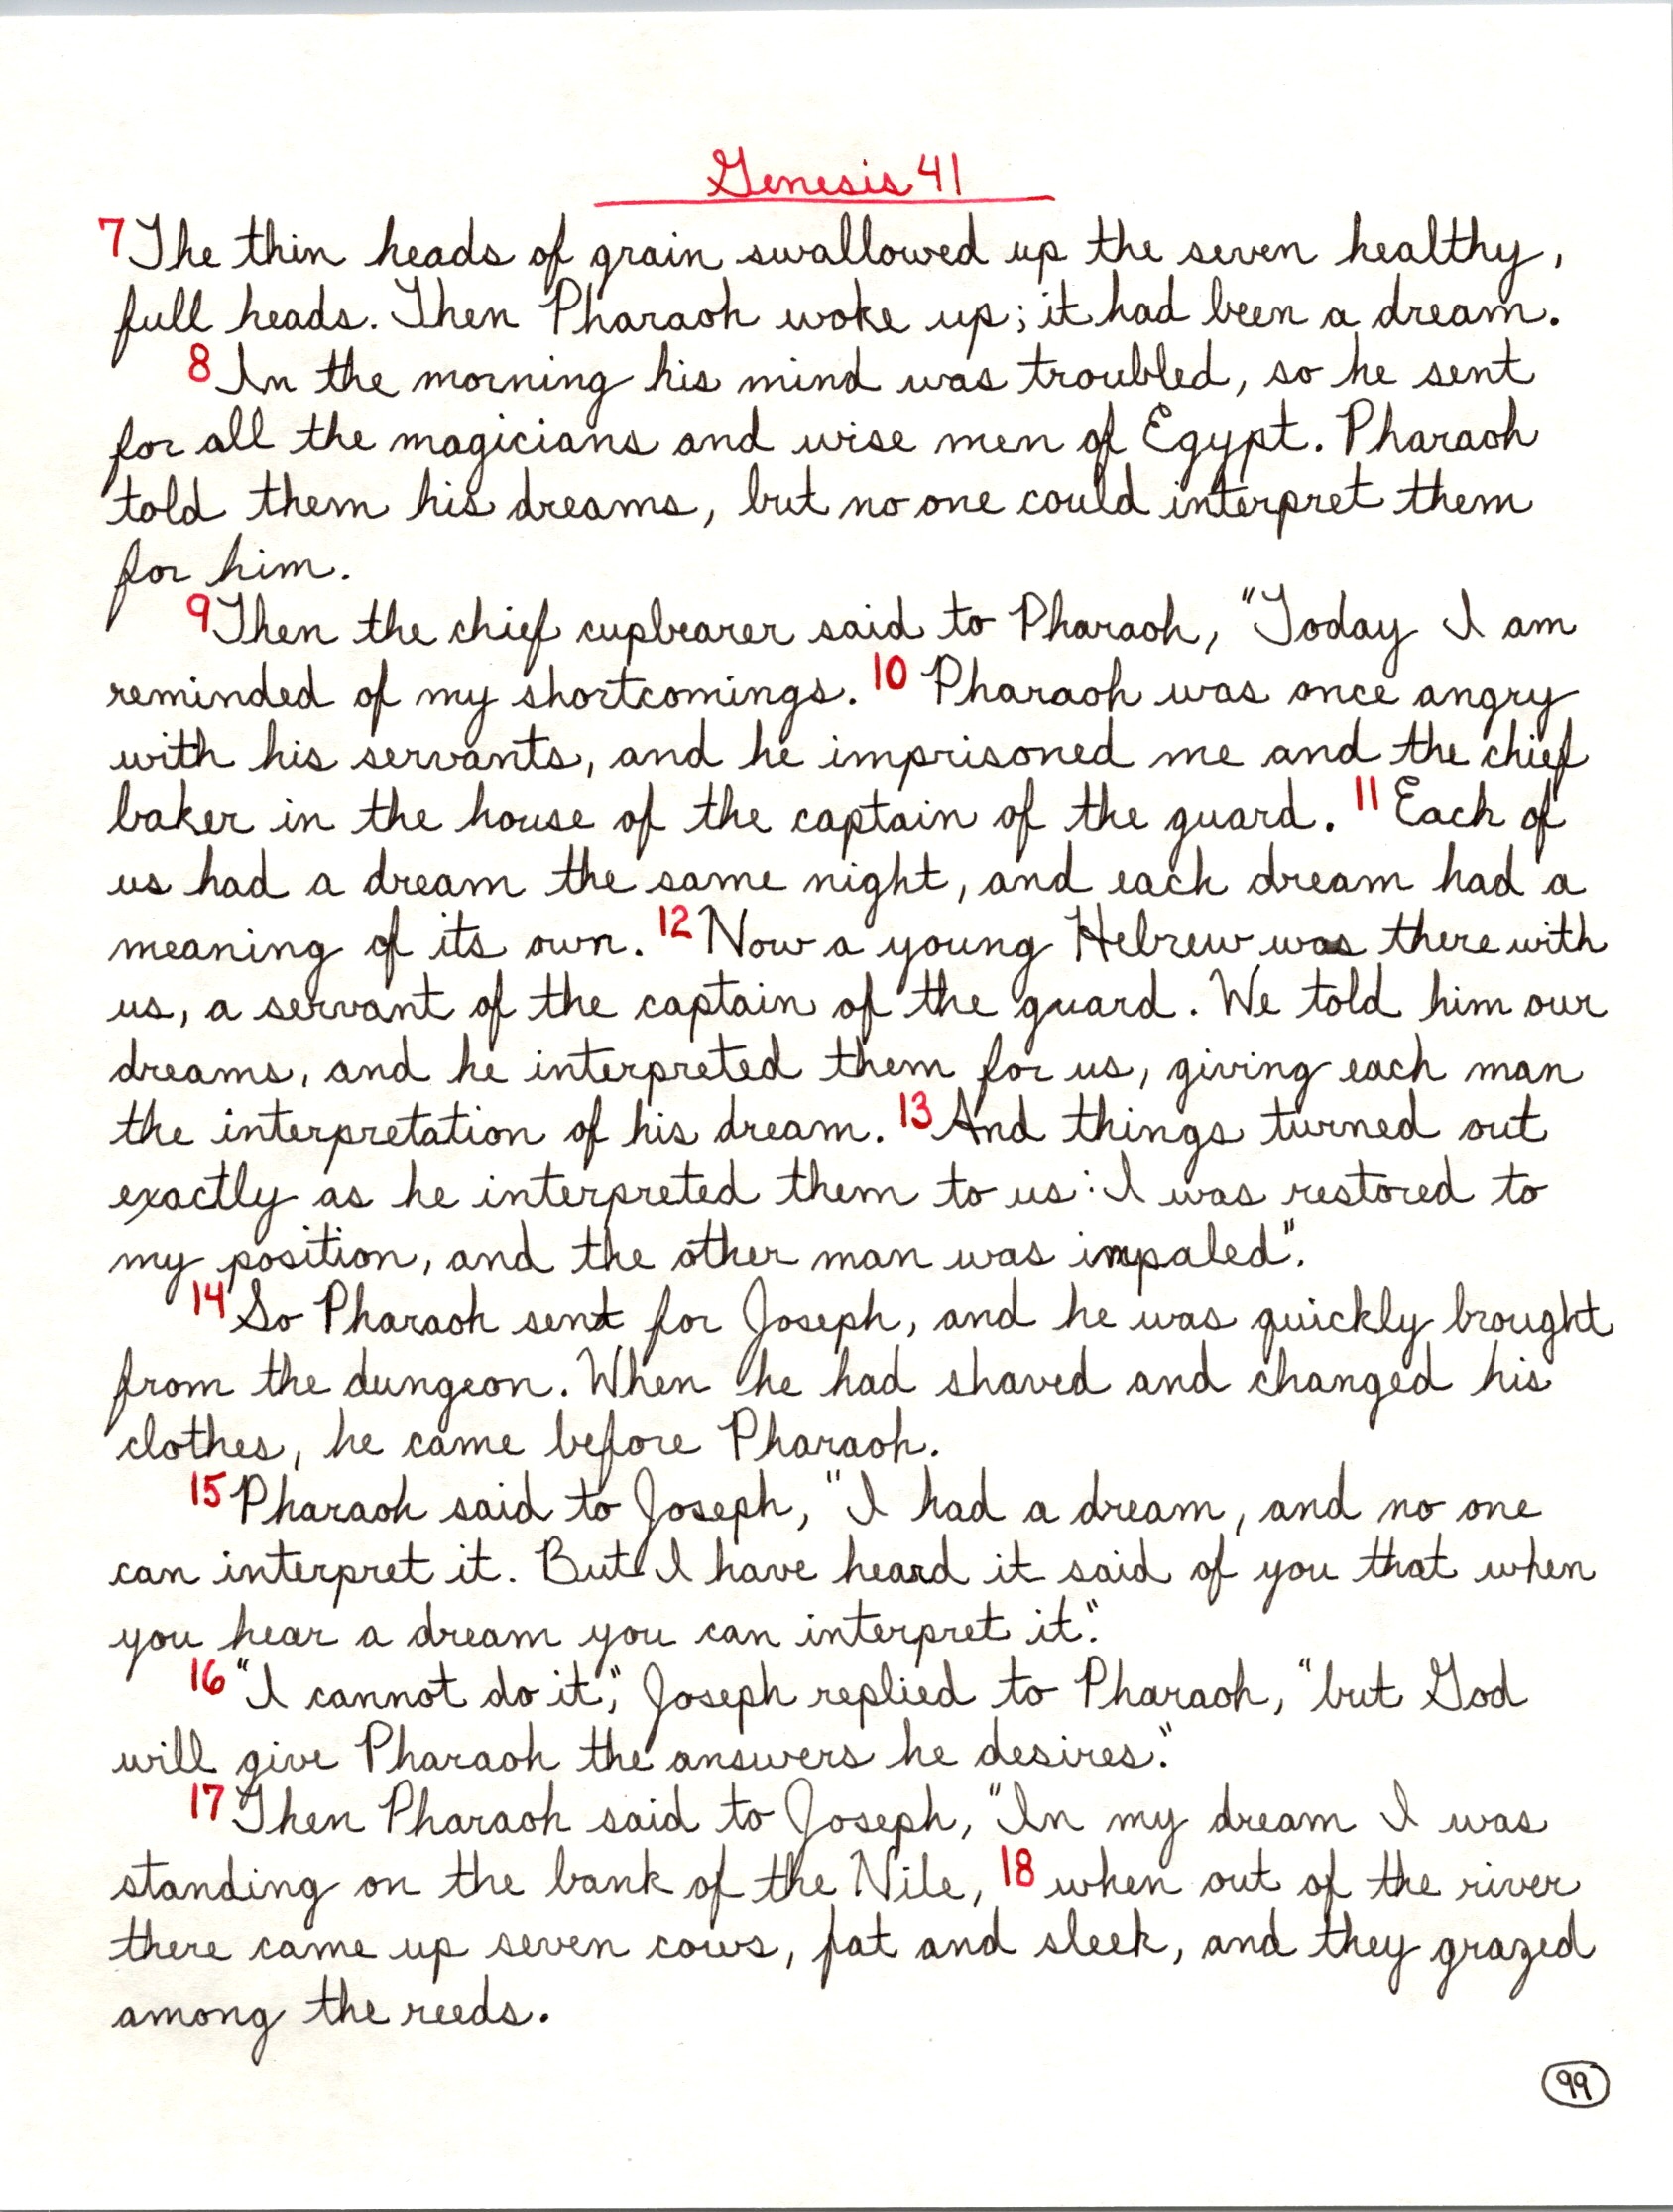 Genesis 41
7 The thin heads of grain swallowed up the seven healthy,
full heads. Then Pharaoh woke up; it had been a dream.
8 In the morning his mind was troubled, so he sent
for all the magicians and wise men of Egypt. Pharaoh
told them his dreams, but no one could interpret them
for him.
9 Then the chief cupbearer said to Pharaoh, "Today I am
reminded of my shortcomings. 10 Pharaoh was once angry
with his servants, and he imprisoned me and the chief
baker in the house of the captain of the guard. 11 Each of
us had a dream the same night, and each dream had a
meaning of its own. 12 Now a young Hebrew was there with
us, a servant of the captain of the guard. We told him our
dreams, and he interpreted them for us, giving each man
the interpretation of his dream. 13 And things turned out
exactly as he interpreted them to us: I was restored to
my position, and the other man was impaled".
14 So Pharaoh sent for Joseph, and he was quickly brought
from the dungeon. When he had shaved and changed his
clothes, he came before Pharaoh.
15 Pharaoh said to Joseph, "I had a dream, and no one
can interpret it. But I have heard it said of you that when
you hear a dream you can interpret it."
16 "I cannot do it," Joseph replied to Pharaoh, "but God
will give Pharaoh the answers he desires."
17 Then Pharaoh said to Joseph, "In my dream I was
standing on the bank of the Nile, 18 when out of the river
there came up seven cows, fat and sleek, and they grazed
among the reeds.
99